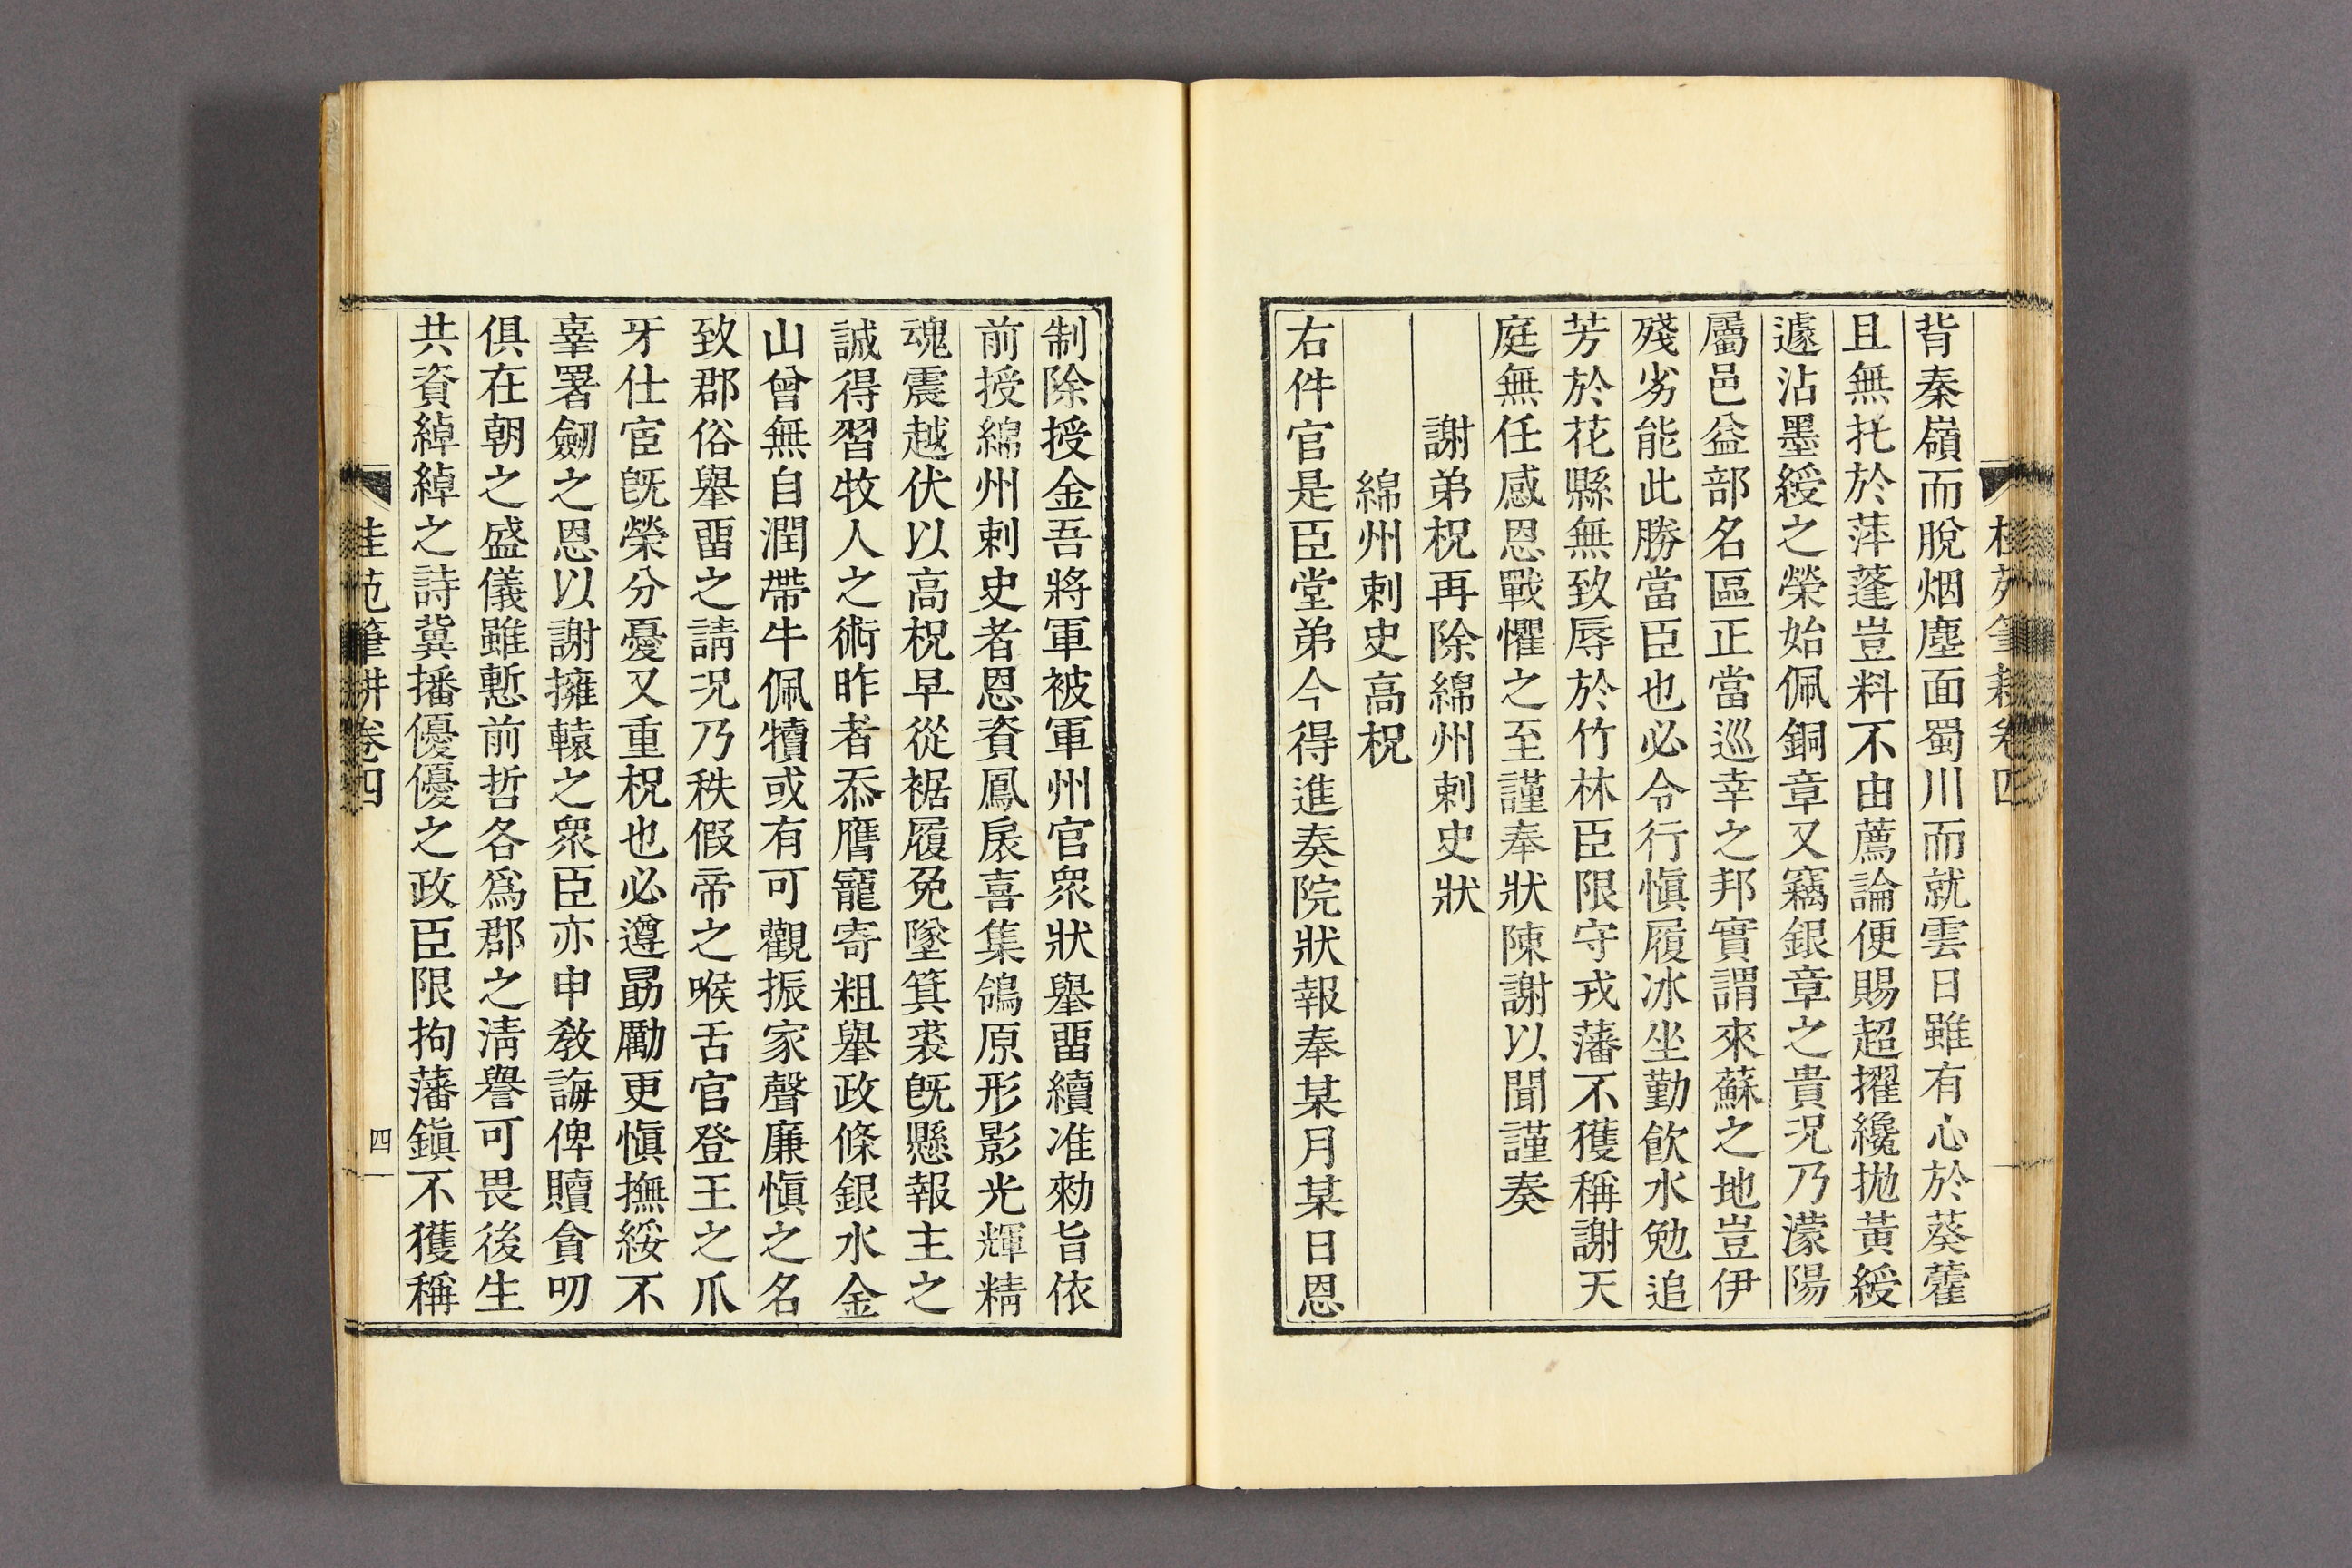 背秦嶺而脫烟塵面蜀川而就雲日雖有心於葵藿
且無托於萍蓬豈料不由薦論便賜超擢纔拋黃綬
遽沾墨綬之榮始佩銅章又竊銀章之貴况乃濛陽
屬邑益部名區正當巡幸之邦實謂來蘇之地豈伊
殘劣能此勝當臣也必令行愼履冰坐勤飮水勉追
芳於花縣無致辱於竹林臣限守戎藩不獲稱謝天
庭無任感恩戰懼之至謹奉狀陳謝以聞謹奏
謝弟柷再除綿州刺史狀
綿州刺史高柷
右件官是臣堂弟今得進奏院狀報奉某月某日恩
制除授金吾將軍被軍州官衆狀舉畱續准勑旨依
前授綿州刺史者恩資鳳扆喜集鴒原形影光輝精
魂震越伏以高柷早從裾履免墜箕裘旣懸報主之
誠得習牧人之術昨者忝膺寵寄粗舉政條銀水金
山曾無自潤帶牛佩犢或有可觀振家聲廉愼之名
致郡俗舉畱之請况乃秩假帝之喉舌官登王之爪
牙仕宦旣榮分憂又重柷也必遵勗勵更愼撫綏不
辜署劒之恩以謝擁轅之衆臣亦申敎誨俾贖貪叨
俱在朝之盛儀雖慙前哲各爲郡之淸譽可畏後生
共資綽綽之詩冀播優優之政臣限拘藩鎭不獲稱
桂苑筆耕卷四
四